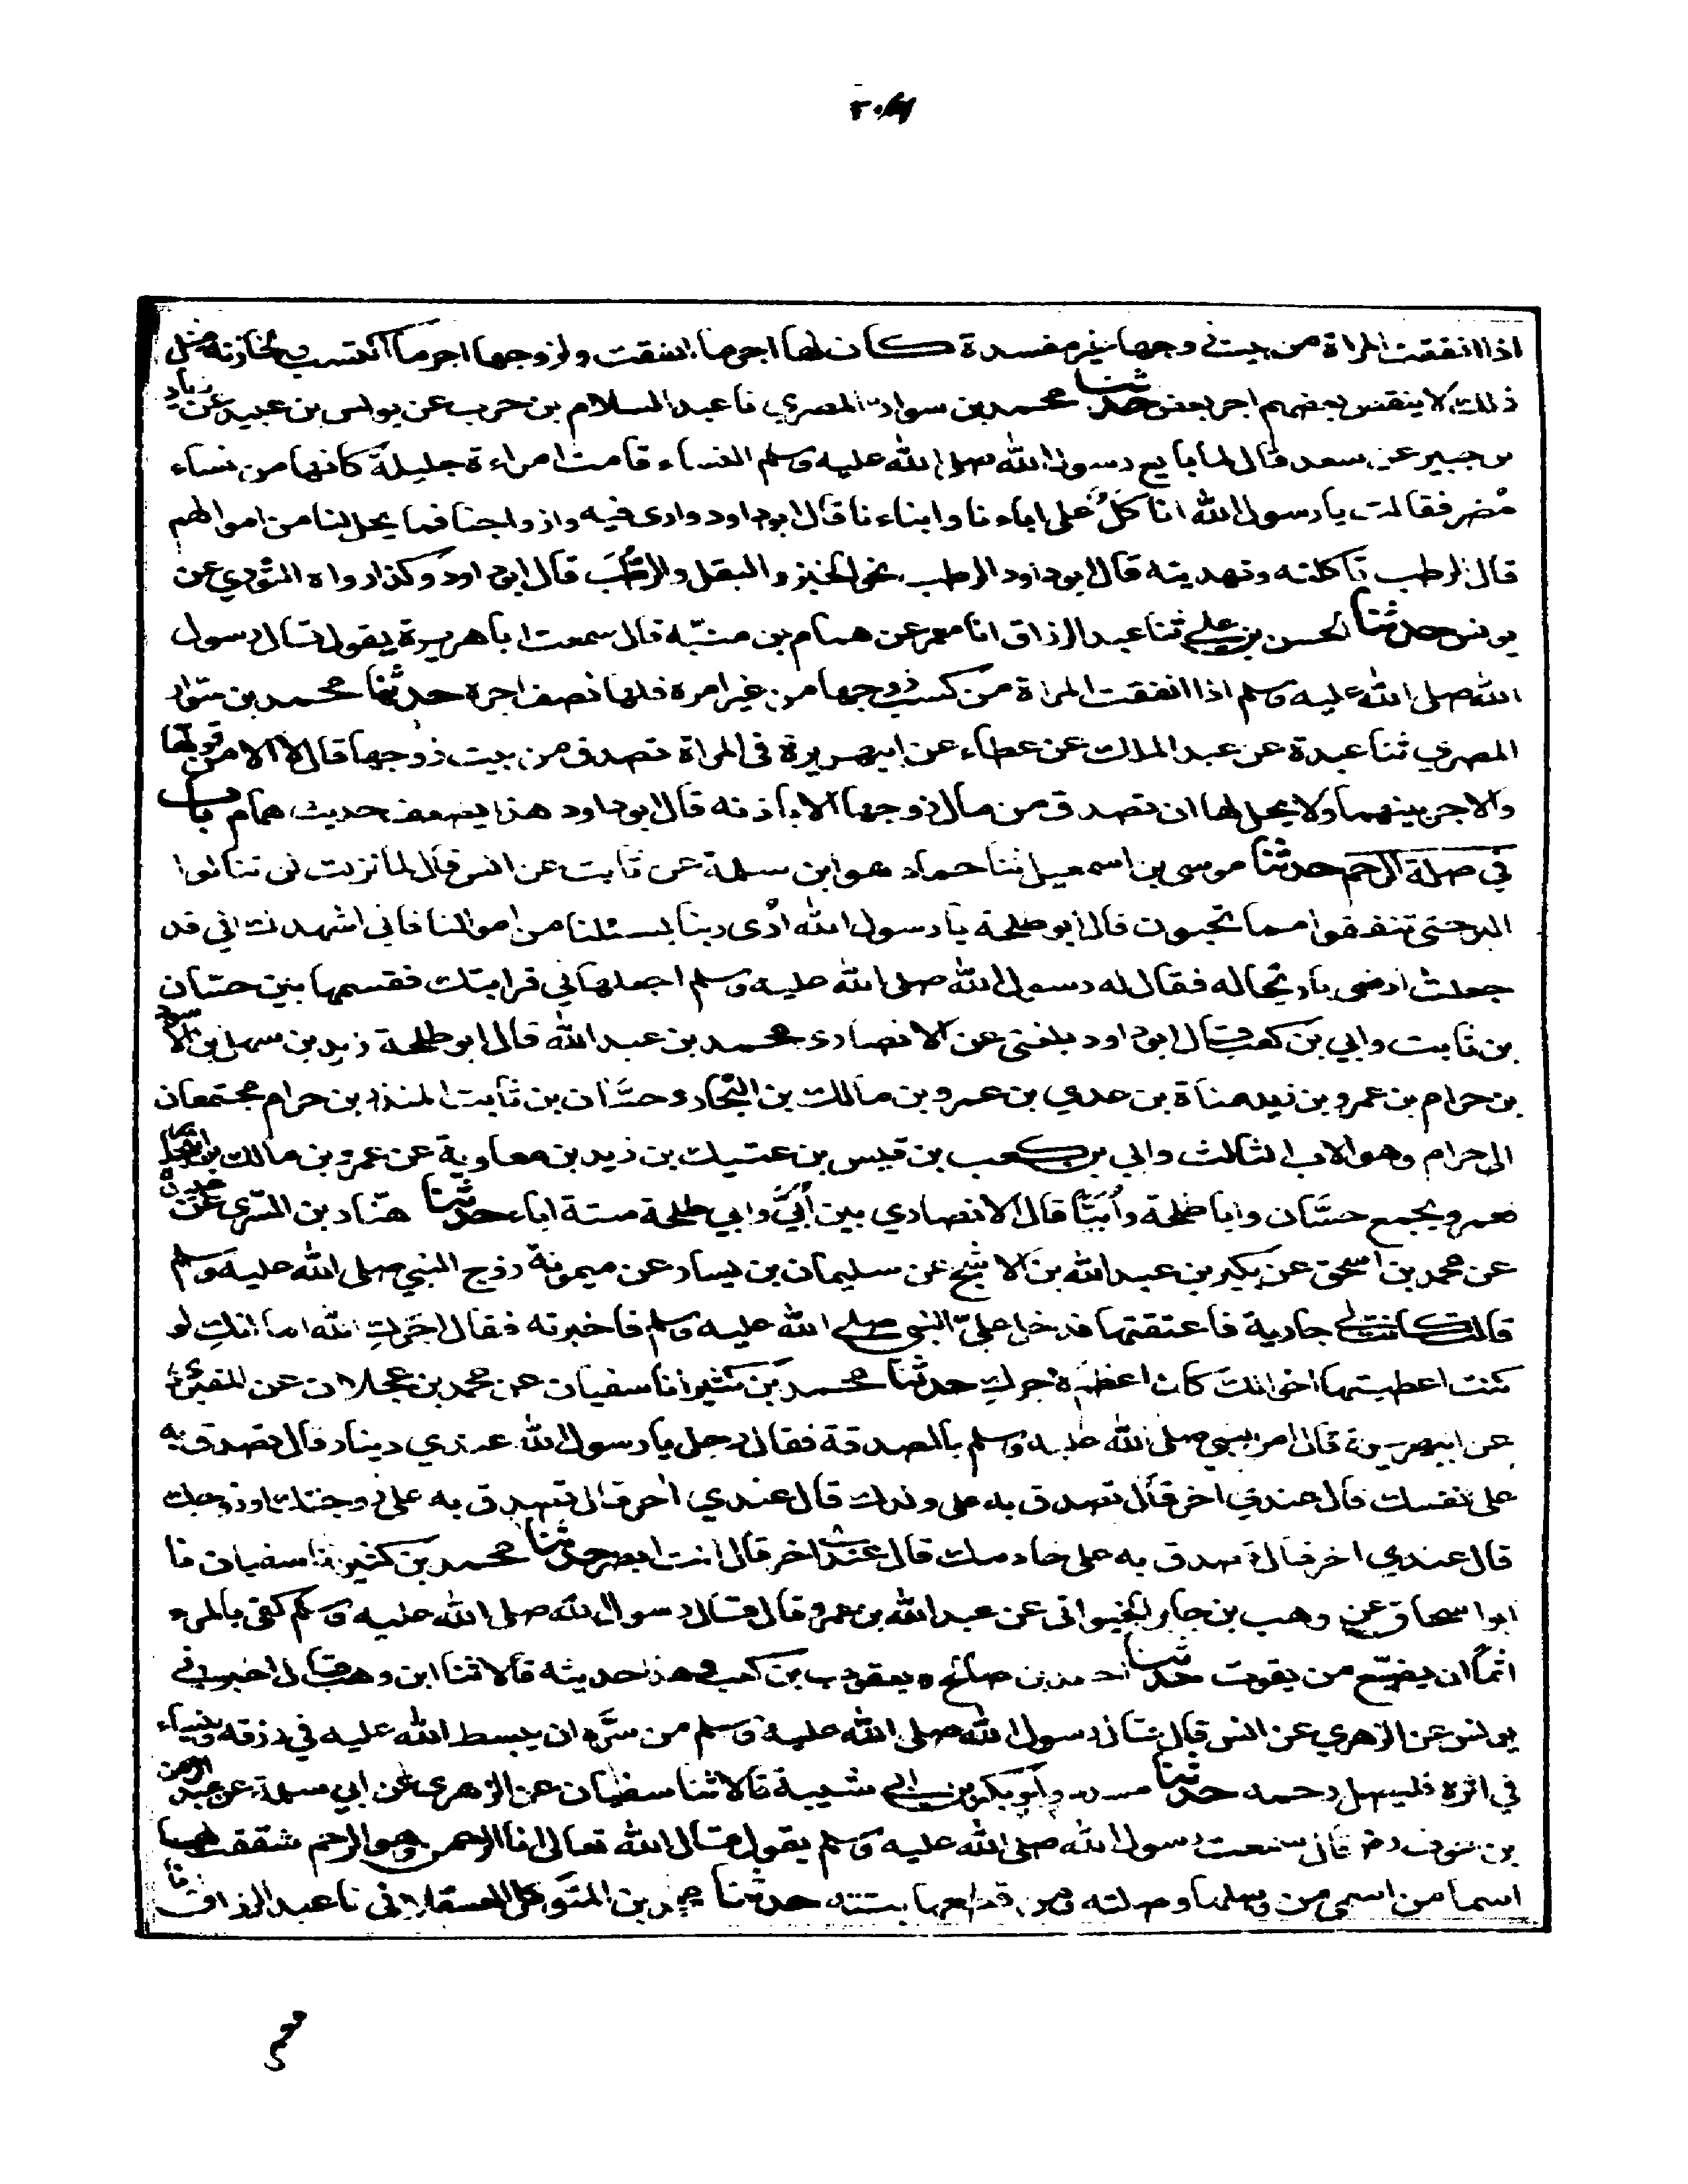 ٢٠٨
اذا انفقت المراة من بيت زوجها غير مفسدة كان لها اجر ما انفقت ولزوجها اجر ما اكتسب ولخازنه مثل
ذلك لا ينقص بعضهم اجر بعض حدثنا محمد بن سوار المصري نا عبد السلام بن حرب عن يونس بن عبيد عن زياد
بن جبير عن سعد قال لما بايع رسول الله صلى الله عليه وسلم النساء قامت امراءة جليلة كانها من نساء
مضر فقالت يا رسول الله انا كل على اباءنا وابناءنا قال ابو داود وارى فيه وازواجنا فما يحل لنا من اموالهم
قال الرطب تاكلنه وتهدينه قال ابو داود الرطب نحو الخبز والبقل والرطب قال ابو داود وكذا رواه الثوري عن
يونس حدثنا الحسن بن علي ثنا عبد الرزاق انا معمر عن همام بن منبه قال سمعت ابا هريرة يقول قال رسول
الله صلى الله عليه وسلم اذا انفقت المراة من كسب زوجها من غير امره فلها نصف اجره حدثنا محمد بن سوار
المصري ثنا عبدة عن عبد الملك عن عطاء عن ابي هريرة في المراة تصدق من بيت زوجها قال لا الا من قوتها
والاجر بينهما ولا يحل لها ان تصدق من مال زوجها الا باذنه قال ابو داود هذا يضعف حديث همام باب
في صلة الرحم حدثنا موسى بن اسمعيل ثنا حماد هو ابن سلمة عن ثابت عن انس قال لما نزلت لن تنالوا
البر حتى تنفقوا مما تحبون قال ابو طلحة يا رسول الله ارى ربنا يسئلنا من اموالنا فاني اشهدك اني قد
جعلت ارضي باريحا له فقال له رسول الله صلى الله عليه وسلم اجعلها في قرابتك فقسمها بين حسان
بن ثابت وابي بن كعب قال ابو داود بلغني عن الانصاري محمد بن عبد الله قال ابو طلحة زيد بن سهل بن الاسود
بن حرام بن عمرو بن زيد مناة بن عدي بن عمرو بن مالك بن النجار وحسان بن ثابت المنذر بن حرام مجتمعان
الى حرام وهو الاب الثالث وابي بن كعب بن قيس بن عتيك بن زيد بن معاوية عن عمرو بن مالك بن النجار
فعمرو يجمع حسان وابا طلحة وأبيا قال الانصاري بين أبي وابي طلحة ستة اباء حدثنا هناد بن السري عن عبدة
عن محمد بن اسحق عن بكير بن عبد الله بن الاشج عن سليمان بن يسار عن ميمونة زوج النبي صلى الله عليه وسلم
قالت كانت لي جارية فاعتقتها فدخل علي النبي صلى الله عليه وسلم فاخبرته فقال اجرك الله اما انك لو
كنت اعطيتها اخوالك كان اعظم لاجرك حدثنا محمد بن كثير انا سفيان عن محمد بن عجلان عن المقبري
عن ابي هريرة قال امر النبي صلى الله عليه وسلم بالصدقة فقال رجل يا رسول الله عندي دينار قال تصدق به
على نفسك قال عندي اخر قال تصدق به على ولدك قال عندي اخر قال تصدق به على زوجتك او زوجك
قال عندي اخر قال تصدق به على خادمك قال عندي اخر قال انت ابصر حدثنا محمد بن كثير نا سفيان نا
ابو اسحاق عن وهب بن جابر الخيواني عن عبد الله بن عمرو قال قال رسول الله صلى الله عليه وسلم كفى بالمرء
اثما ان يضيع من يقوت حدثنا احمد بن صالح ويعقوب بن كعب وهذا حديثه قالا ثنا ابن وهب قال اخبرني
يونس عن الزهري عن انس قال قال رسول الله صلى الله عليه وسلم من سره ان يبسط الله عليه في رزقه وينساء
في اثره فليصل رحمه حدثنا مسدد وابو بكر بن ابي شيبة قالا ثنا سفيان عن الزهري عن ابي سلمة عن عبد الرحمن
بن عوف رض قال سمعت رسول الله صلى الله عليه وسلم يقول قال الله تعالى انا الرحمن وهو الرحم شققت لها
اسما من اسمي من وصلها وصلته ومن قطعها بتته حدثنا محمد بن المتوكل العسقلاني نا عبد الرزاق نا